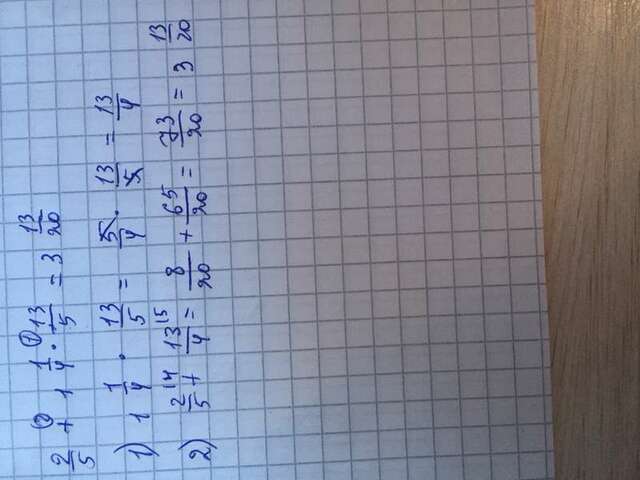 2/5 + 1 1/4 · 13/5 = 3 13/20
1) 1 1/4 · 13/5 = 5/4 · 13/5 = 13/4
2) 2/5 + 13/4 = 8/20 + 65/20 = 73/20 = 3 13/20